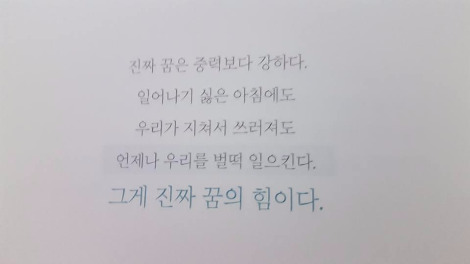 진짜 꿈은 중력보다 강하다.
일어나기 싫은 아침에도
우리가 지쳐서 쓰러져도
언제나 우리를 벌떡 일으킨다.
그게 진짜 꿈의 힘이다.